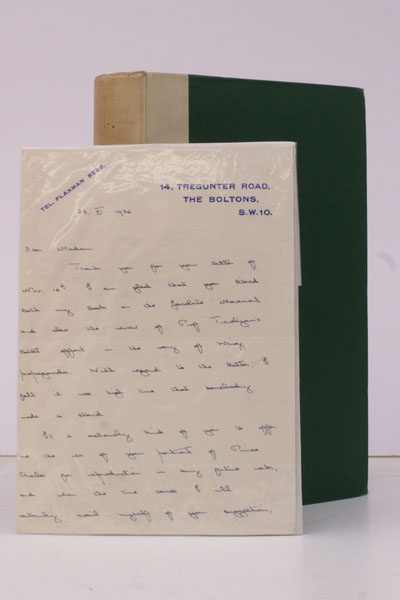 TEL. FLAXMAN
14, TREGUNTER ROAD,
THE BOLTONS,
S.W.10.
XI
Dear Madam
Thank you for your letter of
Nov. I am glad that you liked
both my book on the Jacobite Movement
and also the review of Prof Trevelyan's
latest effort in the way of Whig
propaganda. With regard to the latter, I
felt it was high time that somebody
made a stand.
It is extremely kind of you to offer
me the use of your portrait of Prince
Charles for reproduction in any future work,
and when the time comes I will
certainly avail myself of your suggestion,